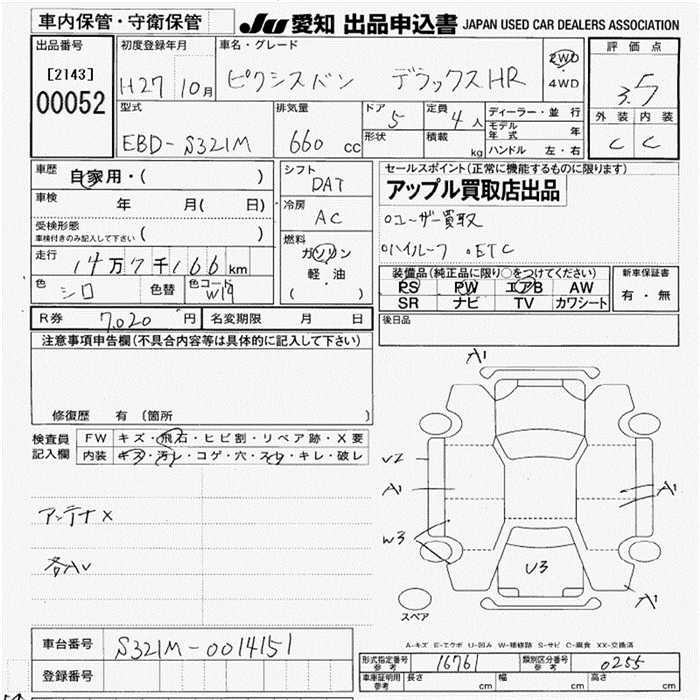 車内保管・守衛保管
JU 愛知 出品申込書 JAPAN USED CAR DEALERS ASSOCIATION
出品番号
[2143]
00052
初度登録年月
H27 10月
車名・グレード
ピクシスバン デラックスHR
2WD
4WD
評価点
3.5
外装 内装
C C
型式
EBD-S321M
排気量
660 cc
ドア
5
形状
定員
4人
積載
kg
ディーラー・並行
モデル年式 年
ハンドル 左・右
車歴
自家用・( )
車検 年 月( 日)
受検形態
車検付きのみ記入して下さい ( )
走行 14万7千166km
色 シロ 色替 色コード W19
シフト
DAT
冷房
AC
燃料
ガソリン
軽・油
( )
セールスポイント(正常に機能するものに限ります)
アップル買取店出品
○ユーザー買取
○ハイルーフ ○ETC
装備品(純正品に限り○をつけてください)
PS PW エアB AW
SR ナビ TV カワシート
新車保証書
有・無
R券 7,020円 名変期限 月 日
後日品
注意事項申告欄(不具合内容等は具体的に記入して下さい)
修復歴 有 〔箇所 〕
検査員記入欄
FW キズ・飛石・ヒビ割・リペア跡・X要
内装 キズ・汚レ・コゲ・穴・スレ・キレ・破レ
アンテナX
各AV
A1
U2
A1
A1
W3
U3
A1
スペア
A-キズ E-エクボ U-凹み W-補修跡 S-サビ C-腐食 XX-交換済
車台番号 S321M-0014151
登録番号
形式指定番号 参考 16761 類別区分番号 参考 0255
車庫証明用 参考 長さ cm 幅 cm 高さ cm